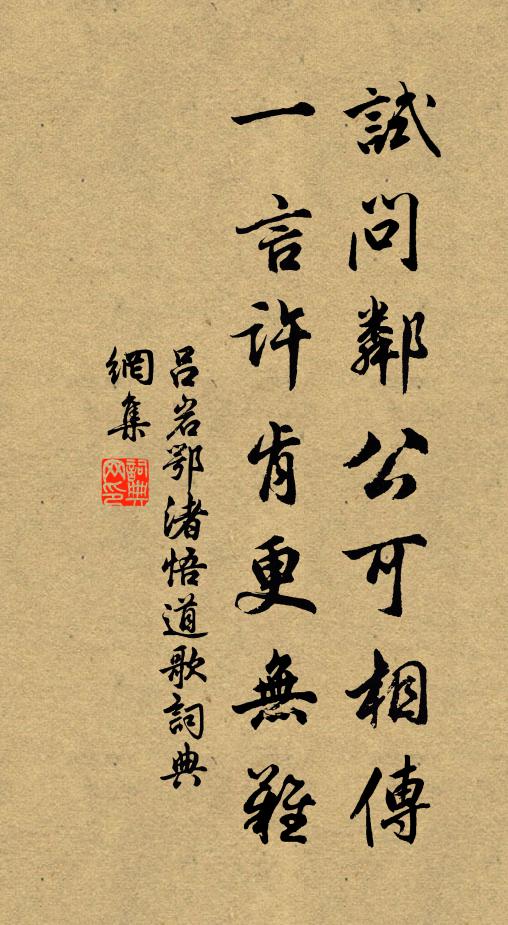 試問鄰公可相傳
一言許肯更無難
吕岩鄂渚悟道歌詞典
網集
詞典
网印